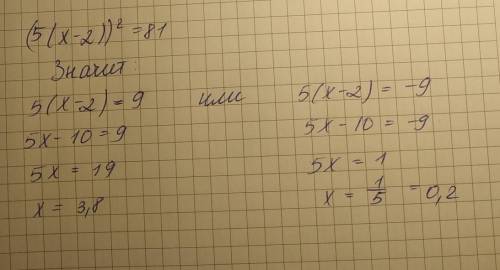 (5(x-2))² = 81
Значит:
5(x-2) = 9 или 5(x-2) = -9
5x-10 = 9 5x-10 = -9
5x = 19 5x = 1
x = 3,8 x = 1/5 = 0,2